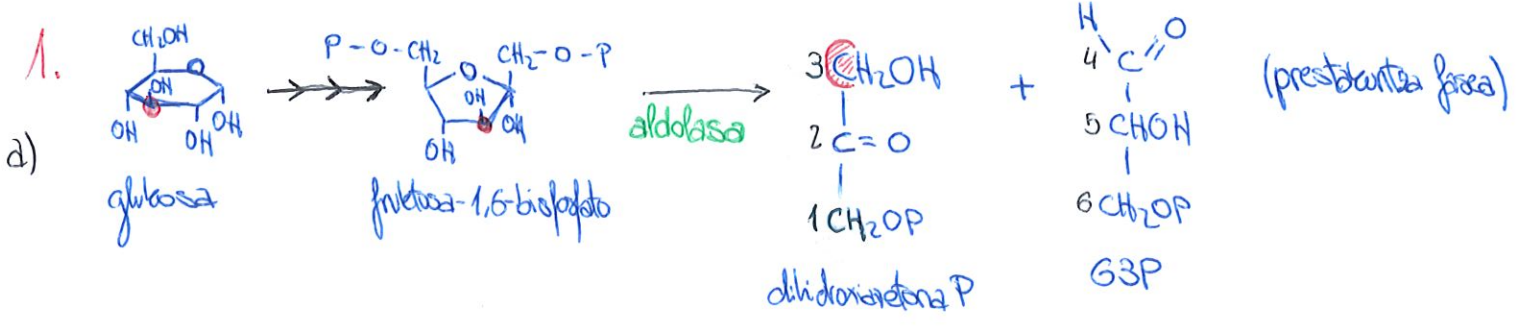 1.
a)
CH₂OH
O
OH
OH
OH
OH
glukosa
P-O-CH₂
CH₂-O-P
O
OH
OH
OH
fruktosa-1,6-bisfosfato
aldolasa
3 CH₂OH
2 C=O
1 CH₂OP
dihidroxiazetona P
+
H
O
4 C
5 CHOH
6 CH₂OP
G3P
(prestakuntza fasea)